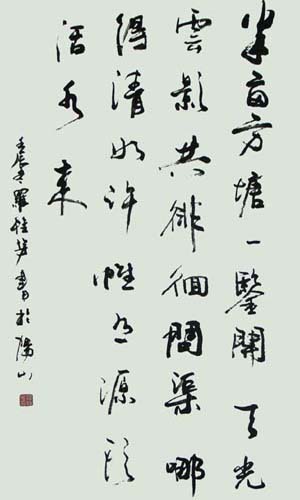 半亩方塘一鑒開天光
雲影共徘徊問渠哪
得清如许惟有源头
活水来
壬辰羅書於陽山